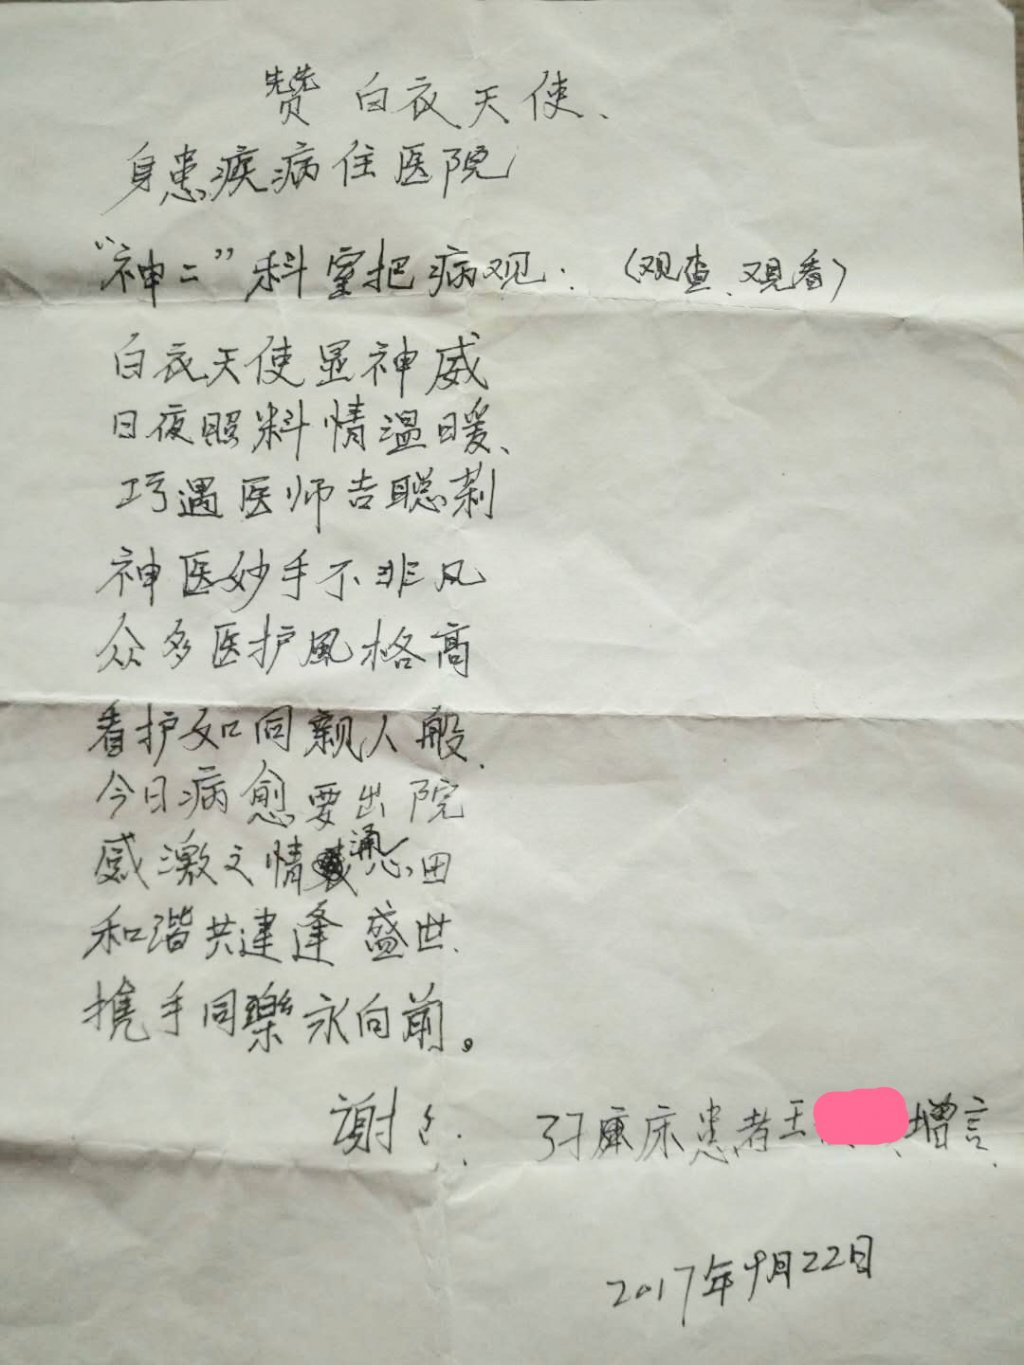 赞 白衣天使、
身患疾病住医院
“神二”科室把病观：（观查、观看）
白衣天使显神威
日夜照料情温暖、
巧遇医师吉聪莉
神医妙手不非凡
众多医护風格高
看护如同亲人般、
今日病愈要出院
感激之情涌心田
和谐共建逢盛世、
携手同樂永向前。
谢
床患者王 增言
2017年9月22日